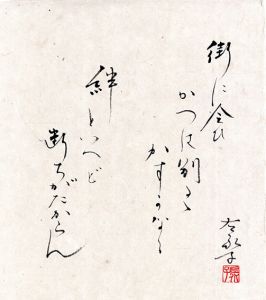 街に会ひ
かつは別るゝ
かすかなる
絆といへど
断ちがたからん